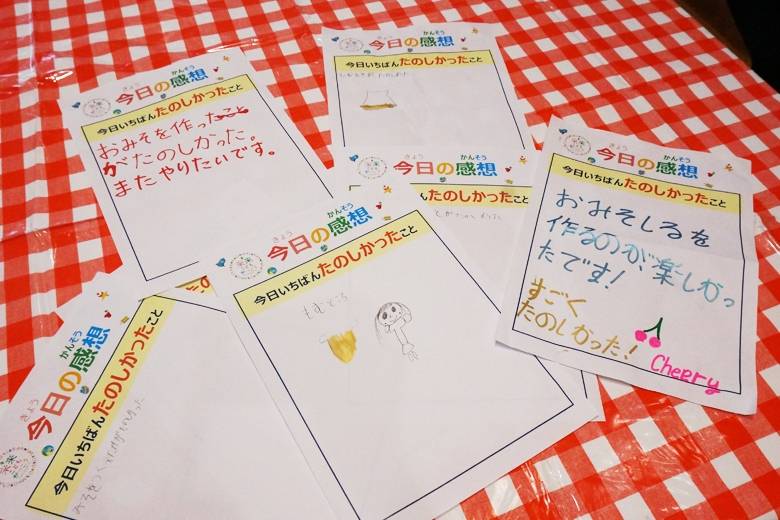 きょう かんそう
今日の感想
今日いちばんたのしかったこと
おみそを作ったこと
がたのしかった。
またやりたいです。
きょう かんそう
今日の感想
今日いちばんたのしかったこと
きょう かんそう
今日の感想
んたのしかったこと
きょう かんそう
今日の感想
今日いちばんたのしかったこと
おみそしるを
作るのが楽しかっ
たです!
すごく
たのしかった!
Cheery
きょう かんそう
今日の感想
今日いちばんたのしかったこと
きょう かんそう
今日の感想
今日いちばんたのしかったこと